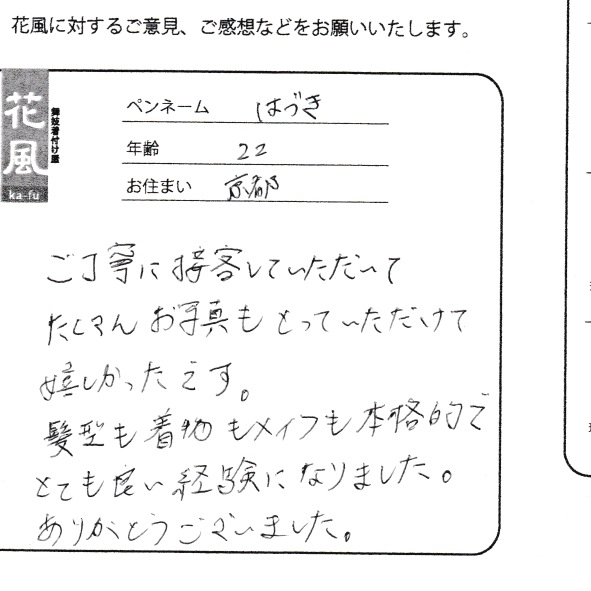 花風に対するご意見、ご感想などをお願いいたします。
花風
舞妓着付け屋
ka-fu
ペンネーム はづき
年齢 22
お住まい 京都
ご丁寧に接客していただいて
たくさんお写真もとっていただけて
嬉しかったです。
髪型も着物もメイクも本格的で
とても良い経験になりました。
ありがとうございました。